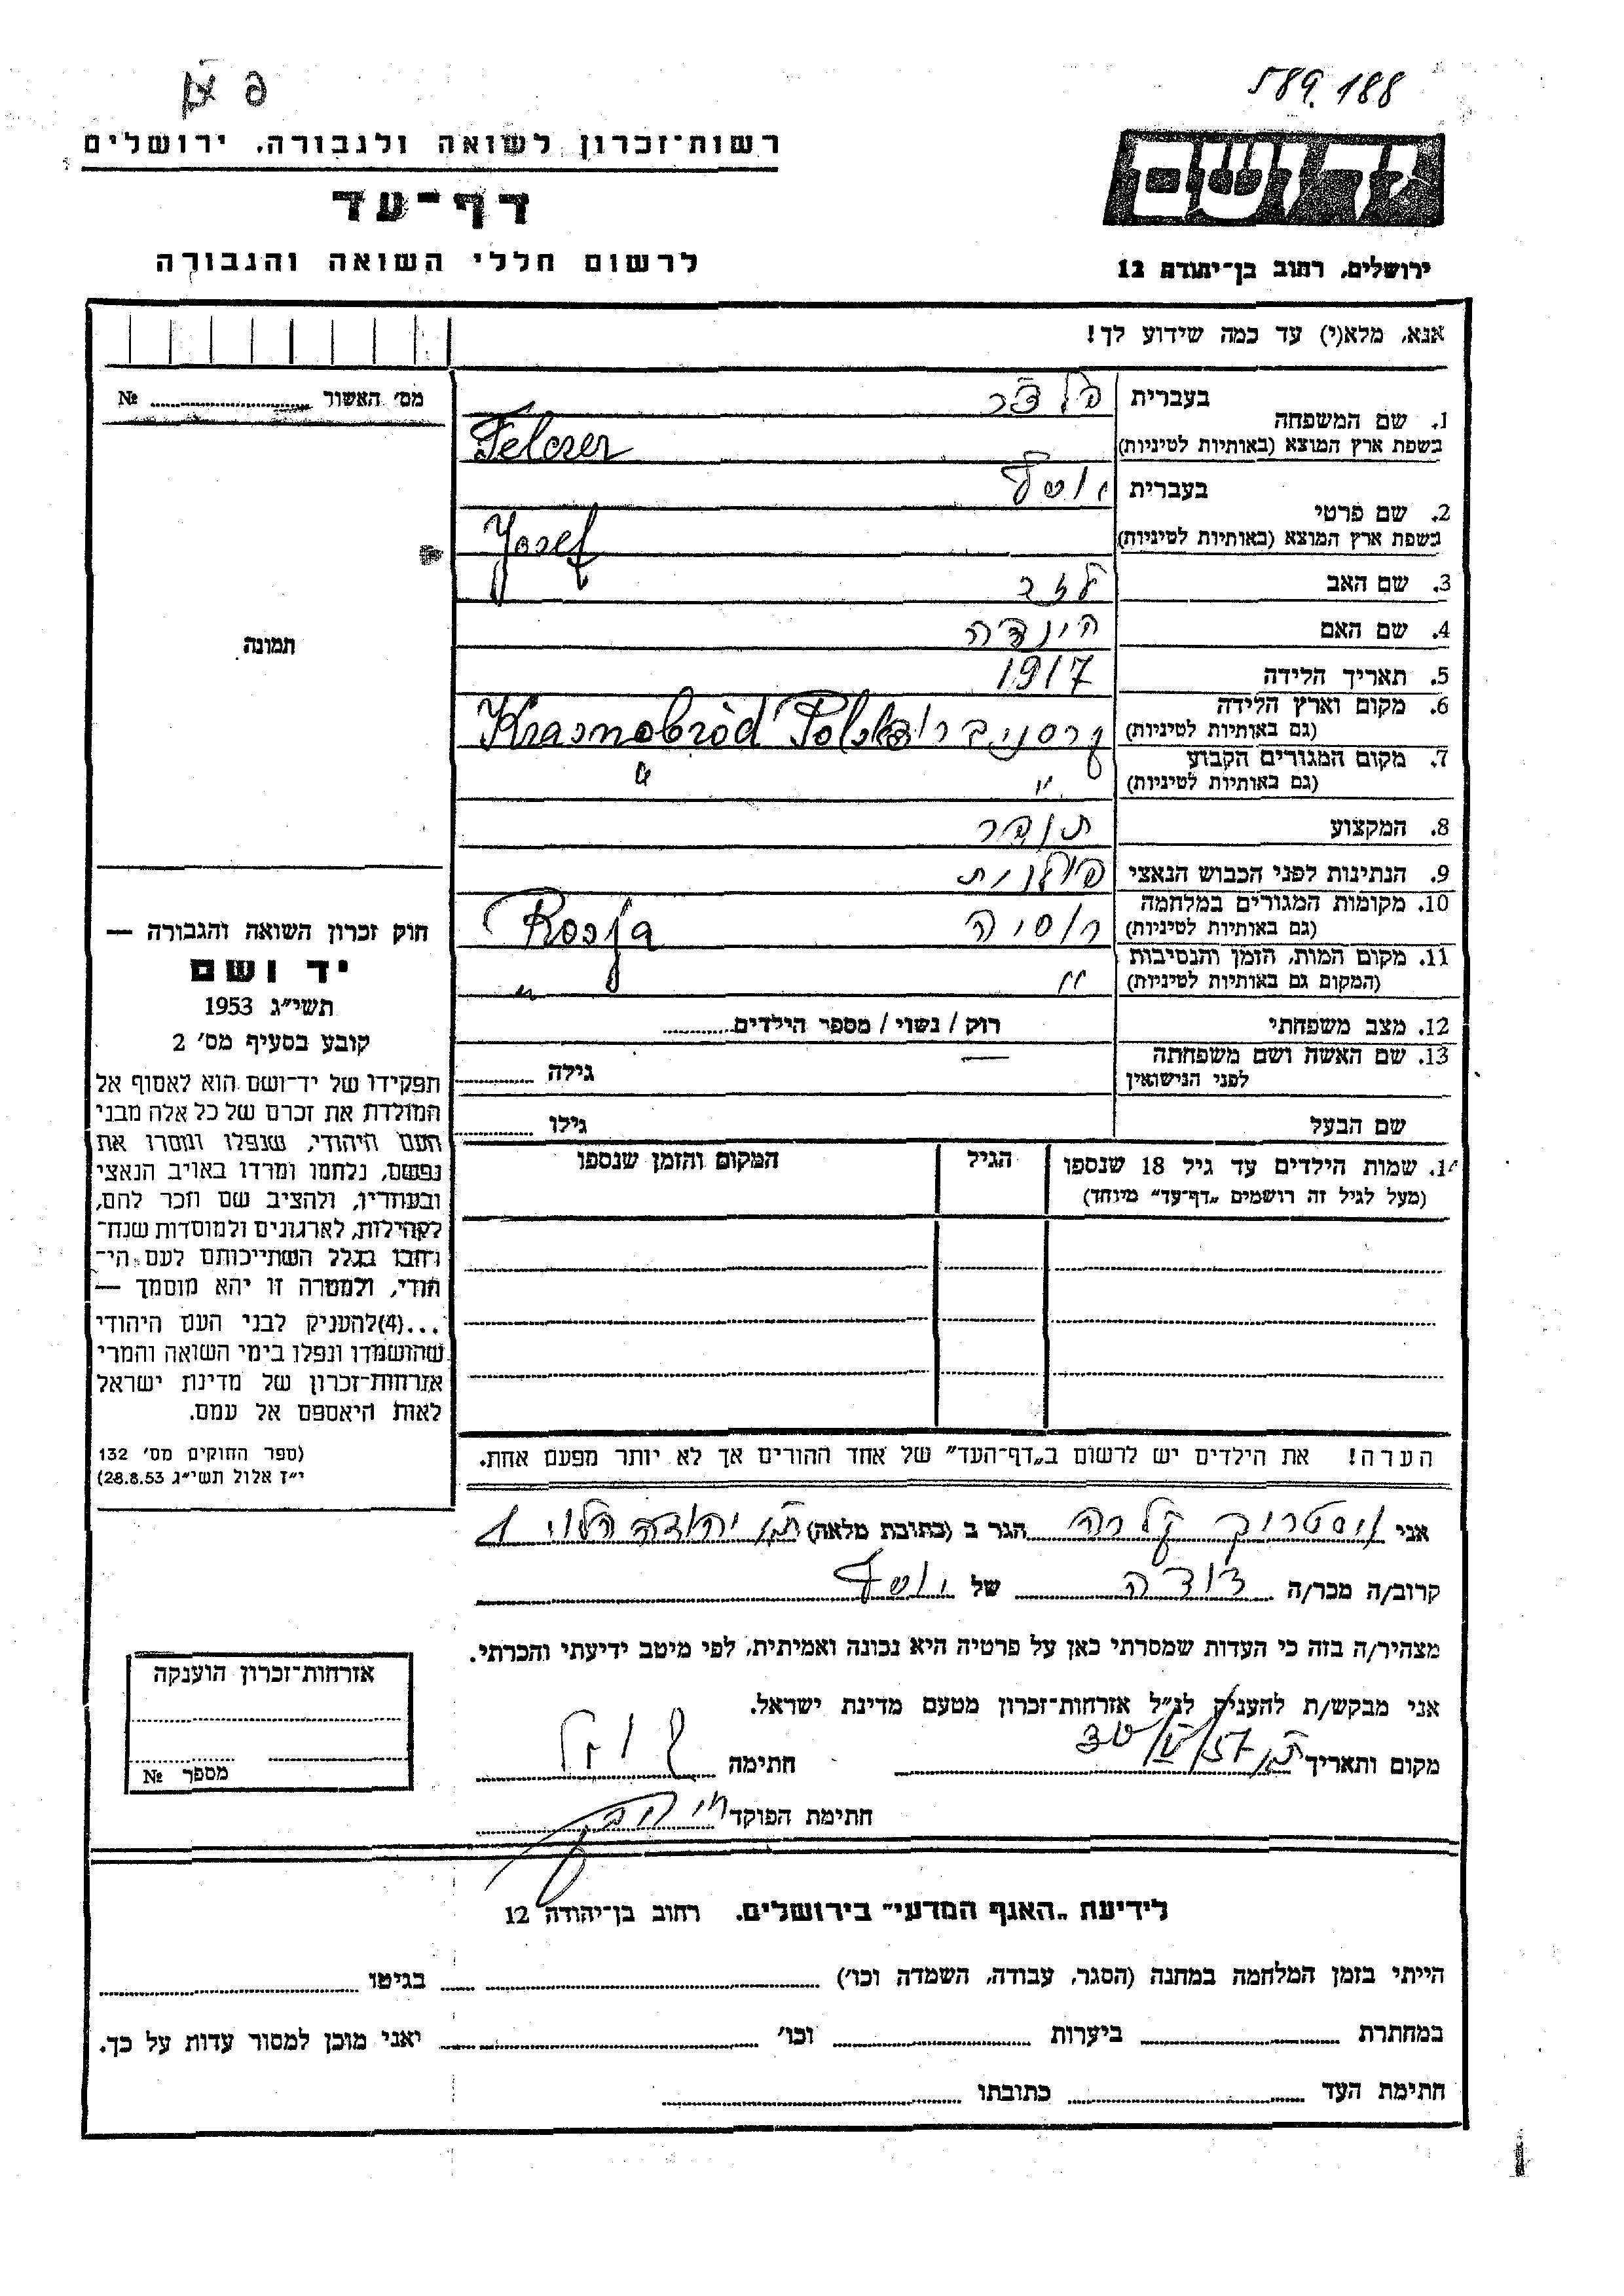 589.188
רשות־זכרון לשואה ולגבורה, ירושלים
יד ושם
דף־עד
לרשום חללי השואה והגבורה
ירושלים, רחוב בן־יהודה 12
אנא, מלא(י) עד כמה שידוע לך!
מס' האשור № 
1. שם המשפחה בעברית פלצר
בשפת ארץ המוצא (באותיות לטיניות) Felczer
2. שם פרטי בעברית יוסף
בשפת ארץ המוצא (באותיות לטיניות) Josef
3. שם האב
4. שם האם הינדה
5. תאריך הלידה 1917
6. מקום וארץ הלידה (גם באותיות לטיניות) Krasnobród Polska
7. מקום המגורים הקבוע (גם באותיות לטיניות) " "
8. המקצוע תופר
9. הנתינות לפני הכבוש הנאצי פולנית
10. מקומות המגורים במלחמה (גם באותיות לטיניות) רוסיה Rosja
11. מקום המות, הזמן והנסיבות (המקום גם באותיות לטיניות) " "
12. מצב משפחתי רוק / נשוי / מספר הילדים
13. שם האשה ושם משפחתה לפני הנישואין — גילה
שם הבעל גילו
14. שמות הילדים עד גיל 18 שנספו (מעל לגיל זה רושמים "דף־עד" מיוחד) הגיל המקום והזמן שנספו
תמונה
חוק זכרון השואה והגבורה —
יד ושם
תשי"ג 1953
קובע בסעיף מס' 2
תפקידו של יד־ושם הוא לאסוף אל
המולדת את זכרם של כל אלה מבני
העם היהודי, שנפלו ומסרו את
נפשם, נלחמו ומרדו באויב הנאצי
ובעוזריו, ולהציב שם וזכר להם,
לקהילות, לארגונים ולמוסדות שנח־
רבו בגלל השתייכותם לעם הי־
הודי, ולמטרה זו יהא מוסמך —
...(4)להעניק לבני העם היהודי
שהושמדו ונפלו בימי השואה והמרי
אזרחות־זכרון של מדינת ישראל
לאות היאספם אל עמם.
(ספר החוקים מס' 132
י"ז אלול תשי"ג 28.8.53)
הערה! את הילדים יש לרשום ב"דף־העד" של אחד ההורים אך לא יותר מפעם אחת.
אני קלרה הגר ב (כתובת מלאה) ת"א יהודה הלוי
קרוב/ה מכר/ה דודה של יוסף
מצהיר/ה בזה כי העדות שמסרתי כאן על פרטיה היא נכונה ואמיתית, לפי מיטב ידיעתי והכרתי.
אני מבקש/ת להעניק לנ"ל אזרחות־זכרון מטעם מדינת ישראל.
מקום ותאריך חתימה
חתימת הפוקד
אזרחות־זכרון הוענקה
מספר №
לידיעת "האגף המדעי" בירושלים. רחוב בן־יהודה 12
הייתי בזמן המלחמה במחנה (הסגר, עבודה, השמדה וכו') בגיטו
במחתרת ביערות וכו' ואני מוכן למסור עדות על כך.
חתימת העד כתובתו